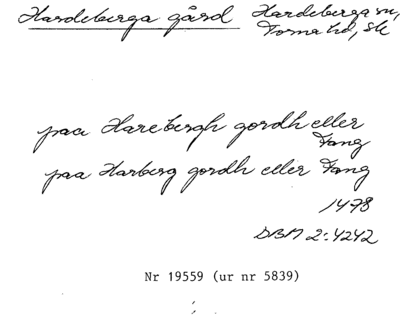 Hardeberga gård Hardeberga sn,
Torna hd, Sk
paa Harebergh gordh eller
Fang
paa Harberg gordh eller Fang
1478
DBM 2:4242
Nr 19559 (ur nr 5839)